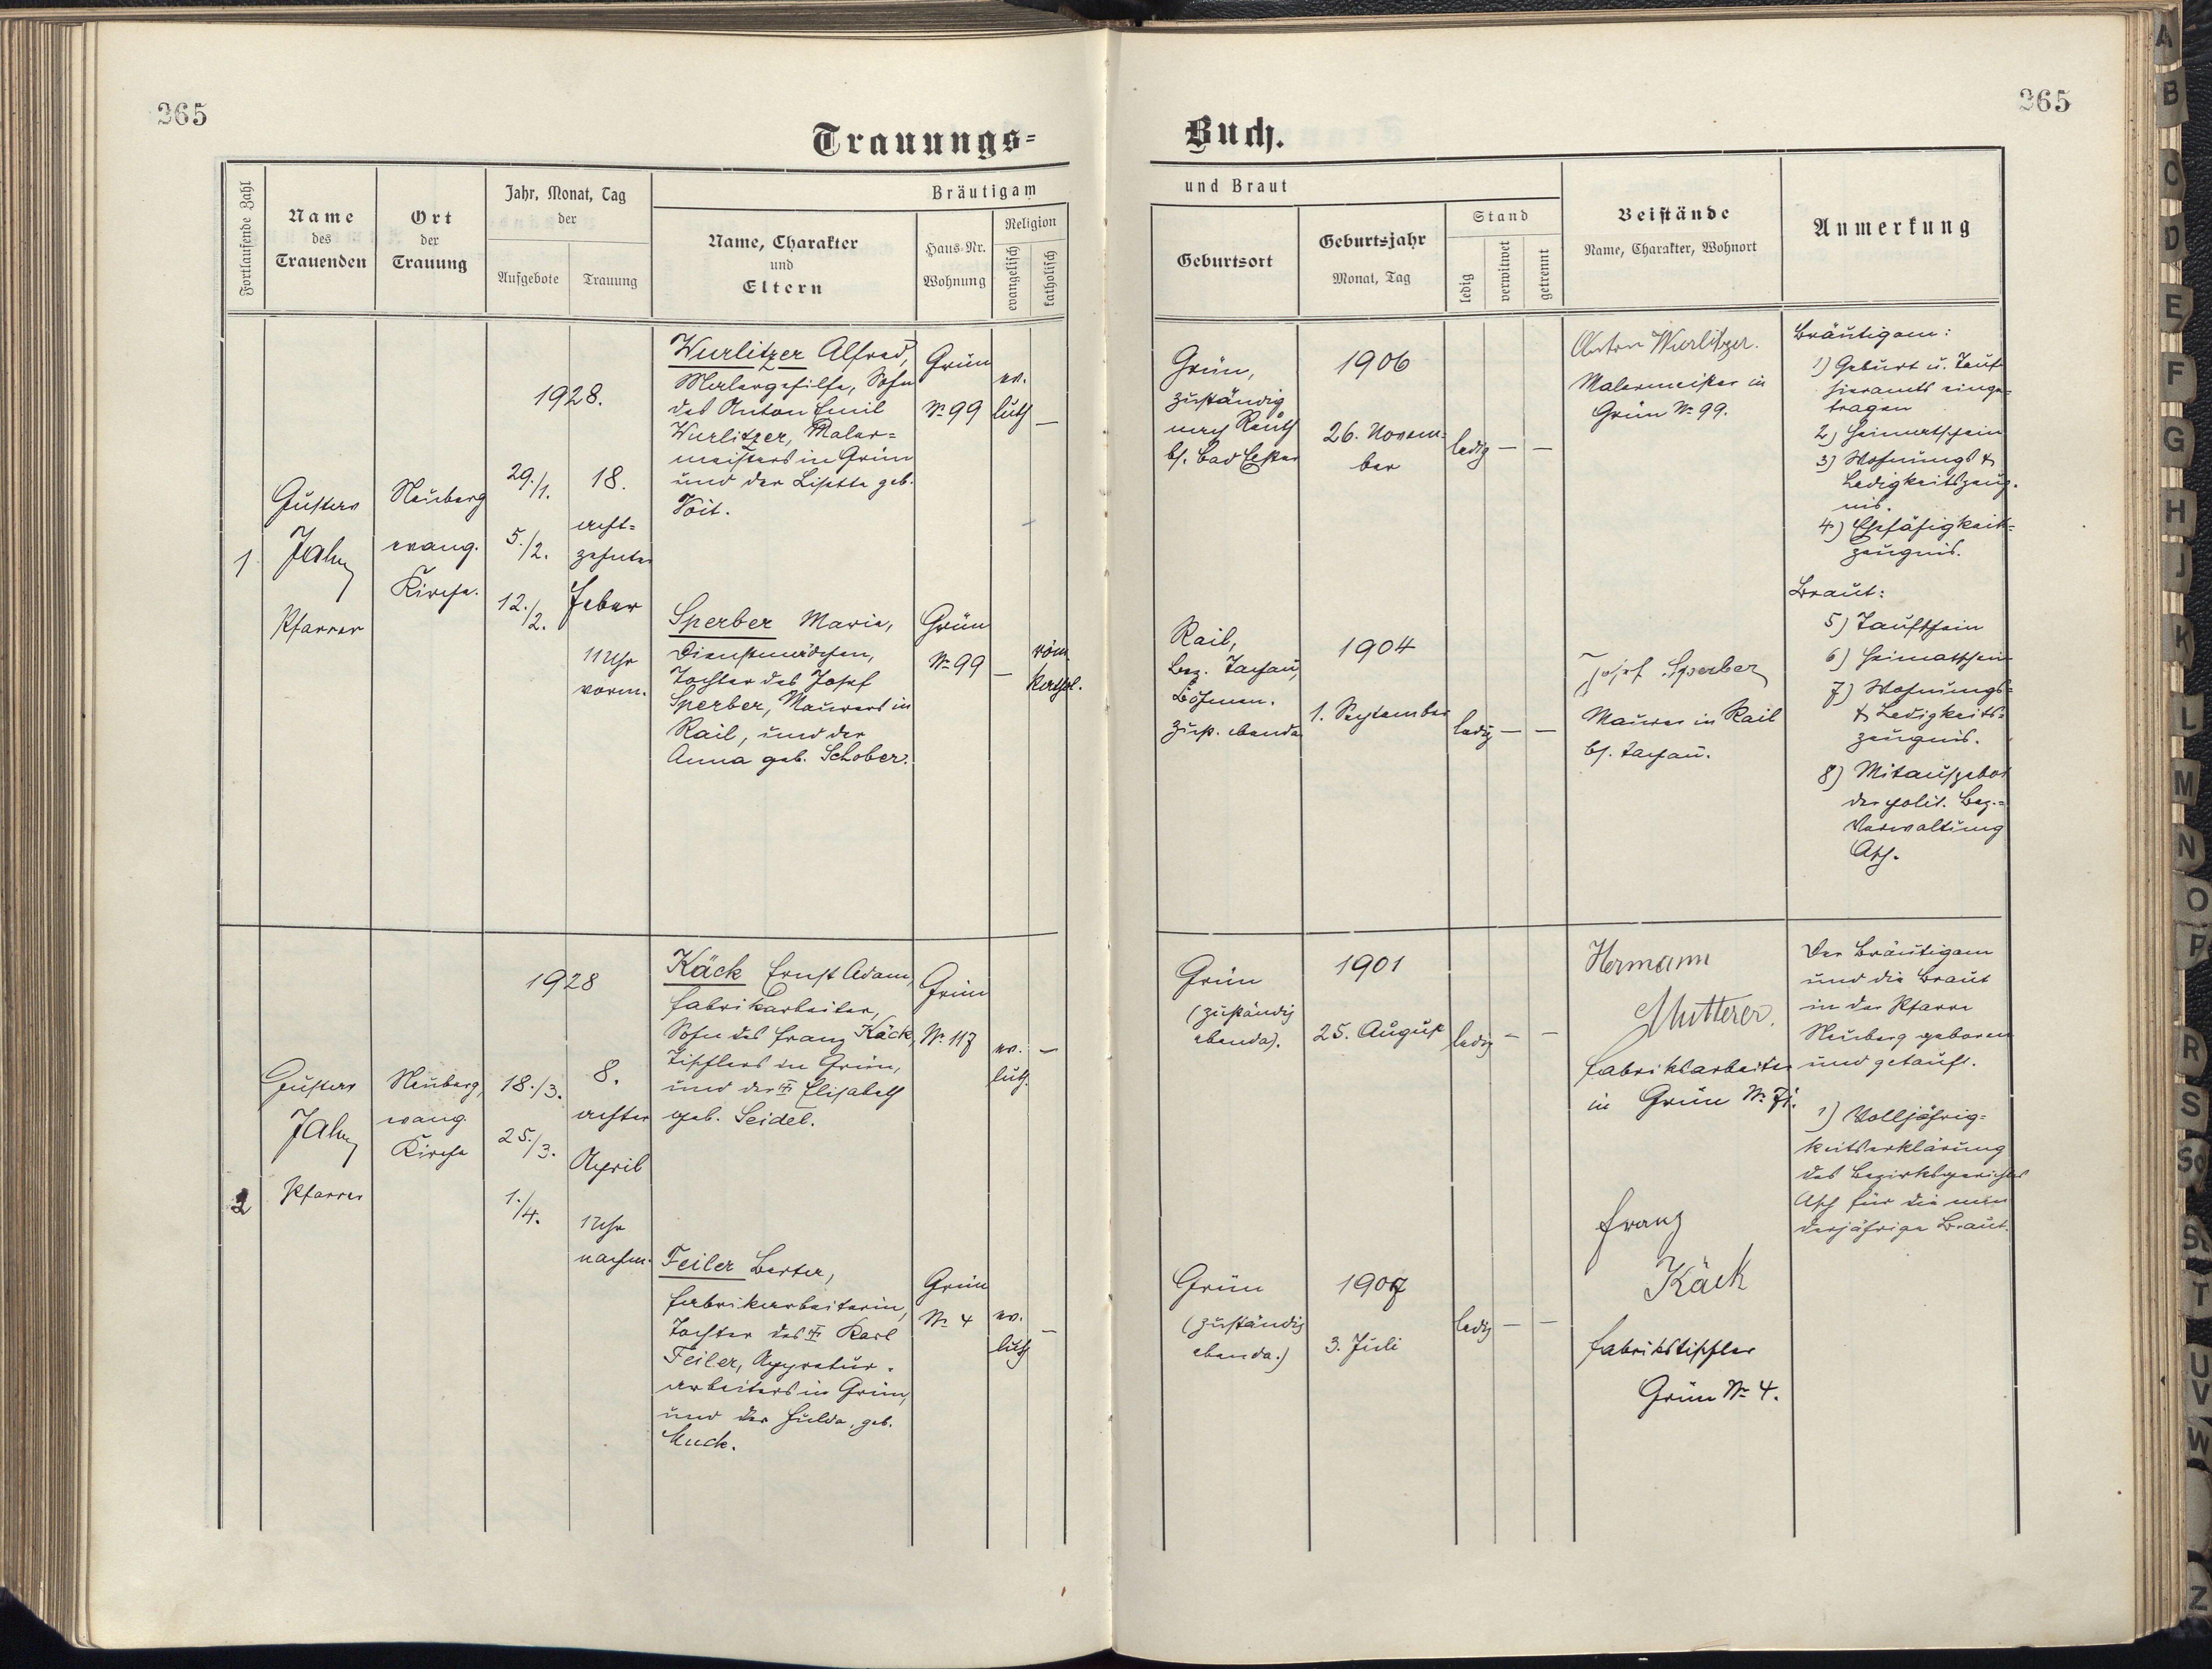 265
265
Trauungs-
Buch.
Fortlaufende Zahl
Name
des
Trauenden
Ort
der
Trauung
Jahr, Monat, Tag
der
Aufgebote
Trauung
Bräutigam
Name, Charakter
und
Eltern
Haus-Nr.
Wohnung
Religion
evangelisch
katholisch
und Braut
Geburtsort
Geburtsjahr
Monat, Tag
Stand
ledig
verwitwet
getrennt
Beistände
Name, Charakter, Wohnort
Anmerkung
1
Gustav
Jahn
Pfarrer
Neuberg
evang.
Kirche.
1928.
29./1.
5./2.
12./2.
18.
acht-
zehnter
Feber
11 Uhr
vorm.
Wurlitzer Alfred,
Malergehilfe, Sohn
des Anton Emil
Wurlitzer, Maler-
meisters in Grün
und der Lisette geb.
Voit.
Grün
Nr. 99
ev.
luth
—
Sperber Marie,
Dienstmädchen,
Tochter des Josef
Sperber, Maurers in
Rail, und der
Anna geb. Schober.
Grün
Nr. 99
—
röm.
kathol.
Grün,
zuständig
nach Reuth
bh. Bad Elster
1906
26. Novem-
ber
ledig — —
Anton Wurlitzer.
Malermeister in
Grün Nr. 99.
Bräutigam:
1) Geburt u. Taufe
hieramts einge-
tragen
2) Heimatschein
3) Wohnungs &
Ledigkeitszeug-
nis.
4) Ehefähigkeits-
zeugnis.
Rail,
Bez. Tachau,
Böhmen.
zust. ebenda
1904
1. September
ledig — —
Josef Sperber
Maurer in Rail
b. Tachau.
Braut:
5) Taufschein
6) Heimatschein
7) Wohnungs-
& Ledigkeits-
zeugnis.
8) Mitaufgebot
der polit. Bez.-
Verwaltung
Asch.
2
Gustav
Jahn
Pfarrer
Neuberg,
evang.
Kirche
1928
18./3.
25./3.
1./4.
8.
achter
April
1 Uhr
nachm.
Käck Ernst Adam,
Fabrikarbeiter,
Sohn des Franz Käck,
Tischlers in Grün,
und der Elisabeth
geb. Seidel.
Grün
Nr. 117
ev.
luth.
—
Feiler Berta,
Fabrikarbeiterin,
Tochter des Karl
Feiler, Appretur-
arbeiters in Grün,
und der Hulda, geb.
Muck.
Grün
Nr. 4
ev.
luth
—
Grün
(zuständig
ebenda).
1901
25. August
ledig — —
Hermann
Mutterer.
Fabriksarbeiter
in Grün Nr. 71.
Der Bräutigam
und die Braut
in der Pfarre
Neuberg geboren
und getauft.
1) Volljährig-
keitserklärung
des Bezirksgerichtes
Asch für die min
derjährige Braut.
Grün
(zuständig
ebenda.)
1907
3. Juli
ledig — —
Franz
Käck
Fabrikstischler
Grün Nr. 4.
A
B
C
D
E
F
G
H
J
K
L
M
N
O
P
R
S
St
T
U
V
W
Z